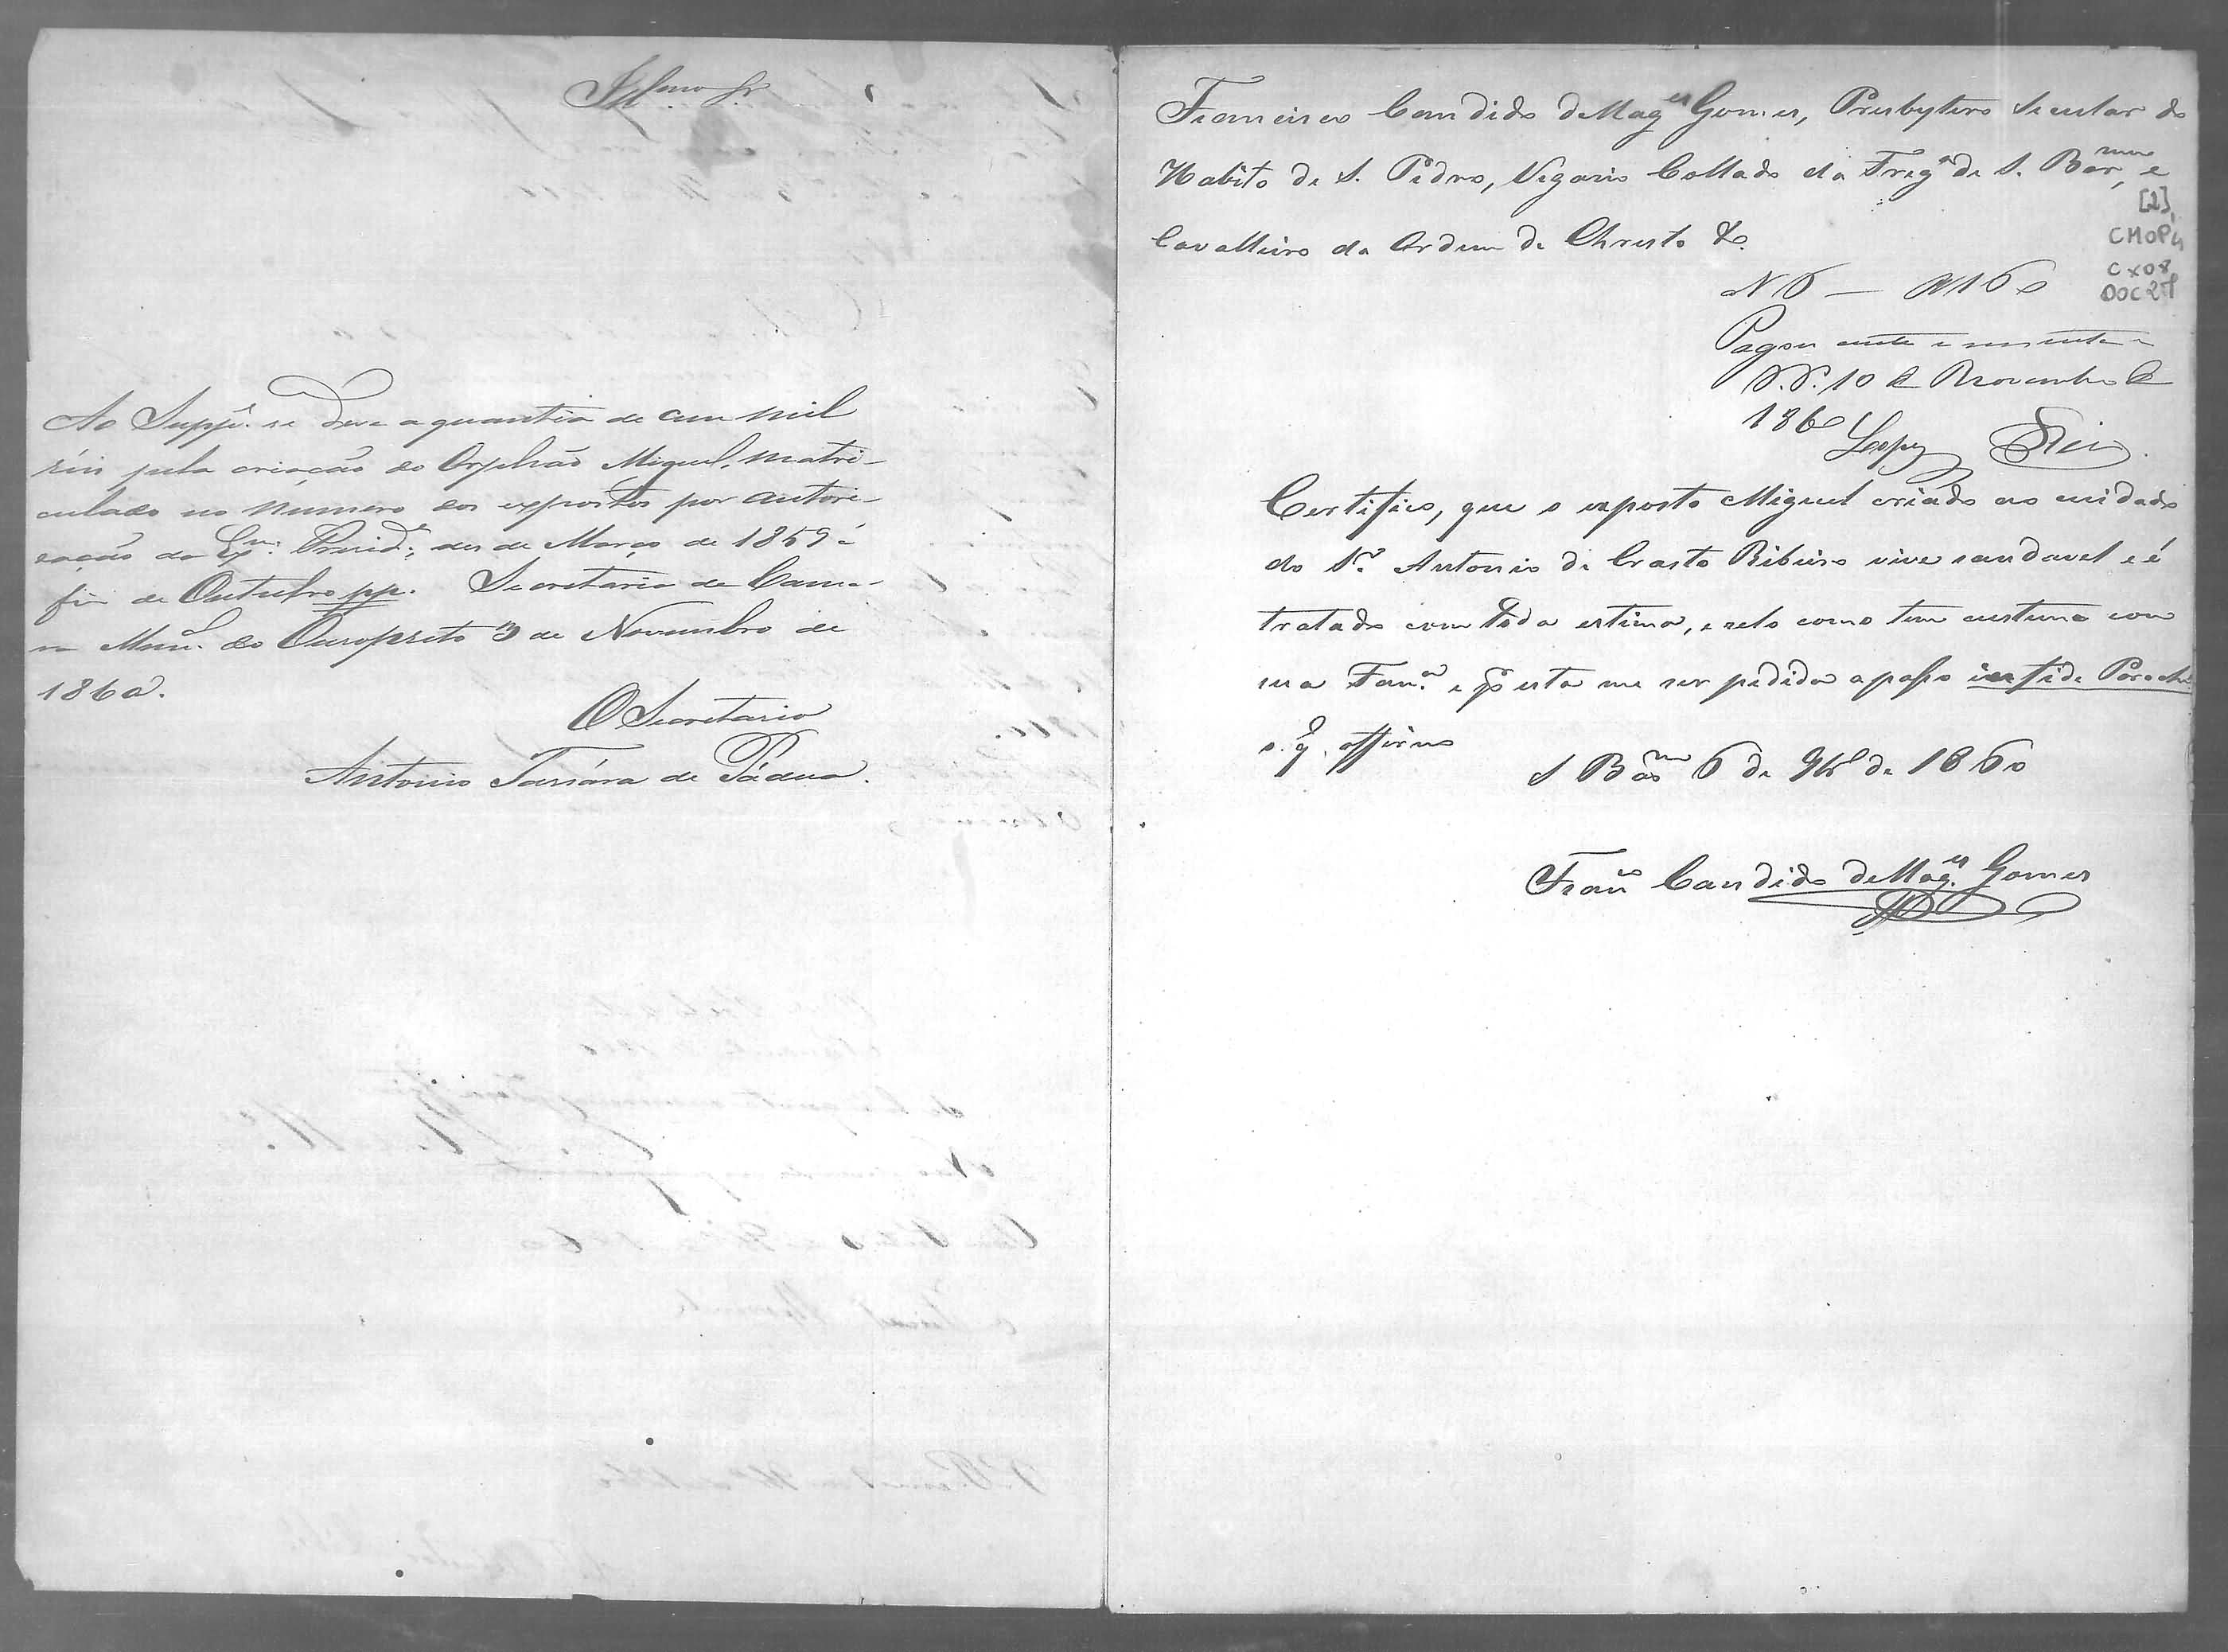 Illmo Sr.
Ao Suppe. se deve a quantia de cem mil
réis pela criação do Orphão Miguel, matri-
culado no numero dos expostos por autori-
zação do Exmo. Preside., des de Março de 1859 á
fim de Outubro pp. Secretaria da Cama-
ra Munal. do Ouropreto 3 de Novembro de
1860.
O Secretario
Antonio de Pádua.
Francisco Candido de Mages Gomes, Presbytero Secular do
Habito de S. Pedro, Vigario Collado da Frega de S. Barmeu, e
Cavalleiro da Ordem de Christo &.
[2]
CMOP
CX08
DOC 27
N 6 — 160
Pagou cento e sessenta rs
O. P. 10 de Novembro de
1860
Certifico, que o exposto Miguel criado ao cuidado
do Sr. Antonio de Crasto Ribeiro vive saudavel e é
tratado com toda estima, e zelo como tem custume com
sua Fama. e por esta me ser pedida a passo in fide Parochi
o q. affirmo
S Barmeu 6 de 9bro de 1860
Franco Candido de Mages. Gomes